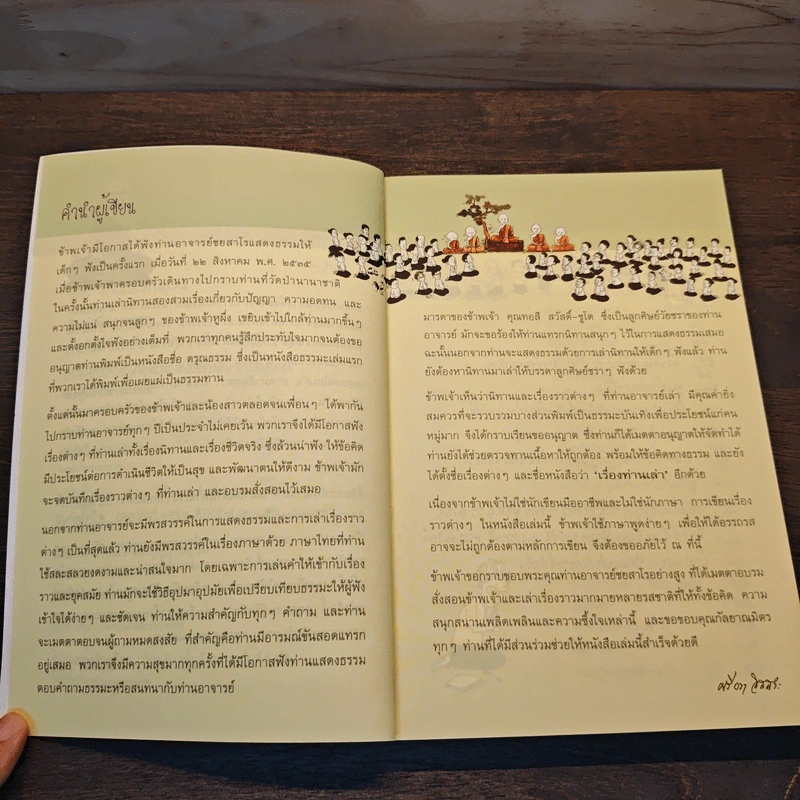 คำนำผู้เขียน
ข้าพเจ้ามีโอกาสได้ฟังท่านอาจารย์ชยสาโรแสดงธรรมให้
เด็กๆ ฟังเป็นครั้งแรก เมื่อวันที่ ๒๒ สิงหาคม พ.ศ. ๒๕๓๕
เมื่อข้าพเจ้าพาครอบครัวเดินทางไปกราบท่านที่วัดป่านานาชาติ
ในครั้งนั้นท่านเล่านิทานสองสามเรื่องเกี่ยวกับปัญญา ความอดทน และ
ความไม่แน่ สนุกจนลูกๆ ของข้าพเจ้าหูผึ่ง เขยิบเข้าไปใกล้ท่านมากขึ้นๆ
และตั้งอกตั้งใจฟังอย่างเต็มที่ พวกเราทุกคนรู้สึกประทับใจมากจนต้องขอ
อนุญาตท่านพิมพ์เป็นหนังสือชื่อ ดรุณธรรม ซึ่งเป็นหนังสือธรรมะเล่มแรก
ที่พวกเราได้พิมพ์เพื่อเผยแผ่เป็นธรรมทาน
ตั้งแต่นั้นมาครอบครัวของข้าพเจ้าและน้องสาวตลอดจนเพื่อนๆ ได้พากัน
ไปกราบท่านอาจารย์ทุกๆ ปีเป็นประจำไม่เคยเว้น พวกเราจึงได้มีโอกาสฟัง
เรื่องต่างๆ ที่ท่านเล่าทั้งเรื่องนิทานและเรื่องชีวิตจริง ซึ่งล้วนน่าฟัง ให้ข้อคิด
มีประโยชน์ต่อการดำเนินชีวิตให้เป็นสุข และพัฒนาตนให้ดีงาม ข้าพเจ้ามัก
จะจดบันทึกเรื่องราวต่างๆ ที่ท่านเล่า และอบรมสั่งสอนไว้เสมอ
นอกจากท่านอาจารย์จะมีพรสวรรค์ในการแสดงธรรมและการเล่าเรื่องราว
ต่างๆ เป็นที่สุดแล้ว ท่านยังมีพรสวรรค์ในเรื่องภาษาด้วย ภาษาไทยที่ท่าน
ใช้สละสลวยงดงามและน่าสนใจมาก โดยเฉพาะการเล่นคำให้เข้ากับเรื่อง
ราวและยุคสมัย ท่านมักจะใช้วิธีอุปมาอุปมัยเพื่อเปรียบเทียบธรรมะให้ผู้ฟัง
เข้าใจได้ง่ายๆ และชัดเจน ท่านให้ความสำคัญกับทุกๆ คำถาม และท่าน
จะเมตตาตอบจนผู้ถามหมดสงสัย ที่สำคัญคือท่านมีอารมณ์ขันสอดแทรก
อยู่เสมอ พวกเราจึงมีความสุขมากทุกครั้งที่ได้มีโอกาสฟังท่านแสดงธรรม
ตอบคำถามธรรมะหรือสนทนากับท่านอาจารย์
มารดาของข้าพเจ้า คุณทอสี สวัสดิ์-ชูโต ซึ่งเป็นลูกศิษย์วัยชราของท่าน
อาจารย์ มักจะขอร้องให้ท่านแทรกนิทานสนุกๆ ไว้ในการแสดงธรรมเสมอ
ฉะนั้นนอกจากท่านจะแสดงธรรมด้วยการเล่านิทานให้เด็กๆ ฟังแล้ว ท่าน
ยังต้องหานิทานมาเล่าให้บรรดาลูกศิษย์ชราๆ ฟังด้วย
ข้าพเจ้าเห็นว่านิทานและเรื่องราวต่างๆ ที่ท่านอาจารย์เล่า มีคุณค่ายิ่ง
สมควรที่จะรวบรวมบางส่วนพิมพ์เป็นธรรมะบันเทิงเพื่อประโยชน์แก่คน
หมู่มาก จึงได้กราบเรียนขออนุญาต ซึ่งท่านก็ได้เมตตาอนุญาตให้จัดทำได้
ท่านยังได้ช่วยตรวจทานเนื้อหาให้ถูกต้อง พร้อมให้ข้อคิดทางธรรม และยัง
ได้ตั้งชื่อเรื่องต่างๆ และชื่อหนังสือว่า 'เรื่องท่านเล่า' อีกด้วย
เนื่องจากข้าพเจ้าไม่ใช่นักเขียนมืออาชีพและไม่ใช่นักภาษา การเขียนเรื่อง
ราวต่างๆ ในหนังสือเล่มนี้ ข้าพเจ้าใช้ภาษาพูดง่ายๆ เพื่อให้ได้อรรถรส
อาจจะไม่ถูกต้องตามหลักการเขียน จึงต้องขออภัยไว้ ณ ที่นี้
ข้าพเจ้าขอกราบขอบพระคุณท่านอาจารย์ชยสาโรอย่างสูง ที่ได้เมตตาอบรม
สั่งสอนข้าพเจ้าและเล่าเรื่องราวมากมายหลายรสชาติที่ให้ทั้งข้อคิด ความ
สนุกสนานเพลิดเพลินและความซึ้งใจเหล่านี้ และขอขอบคุณกัลยาณมิตร
ทุกๆ ท่านที่ได้มีส่วนร่วมช่วยให้หนังสือเล่มนี้สำเร็จด้วยดี